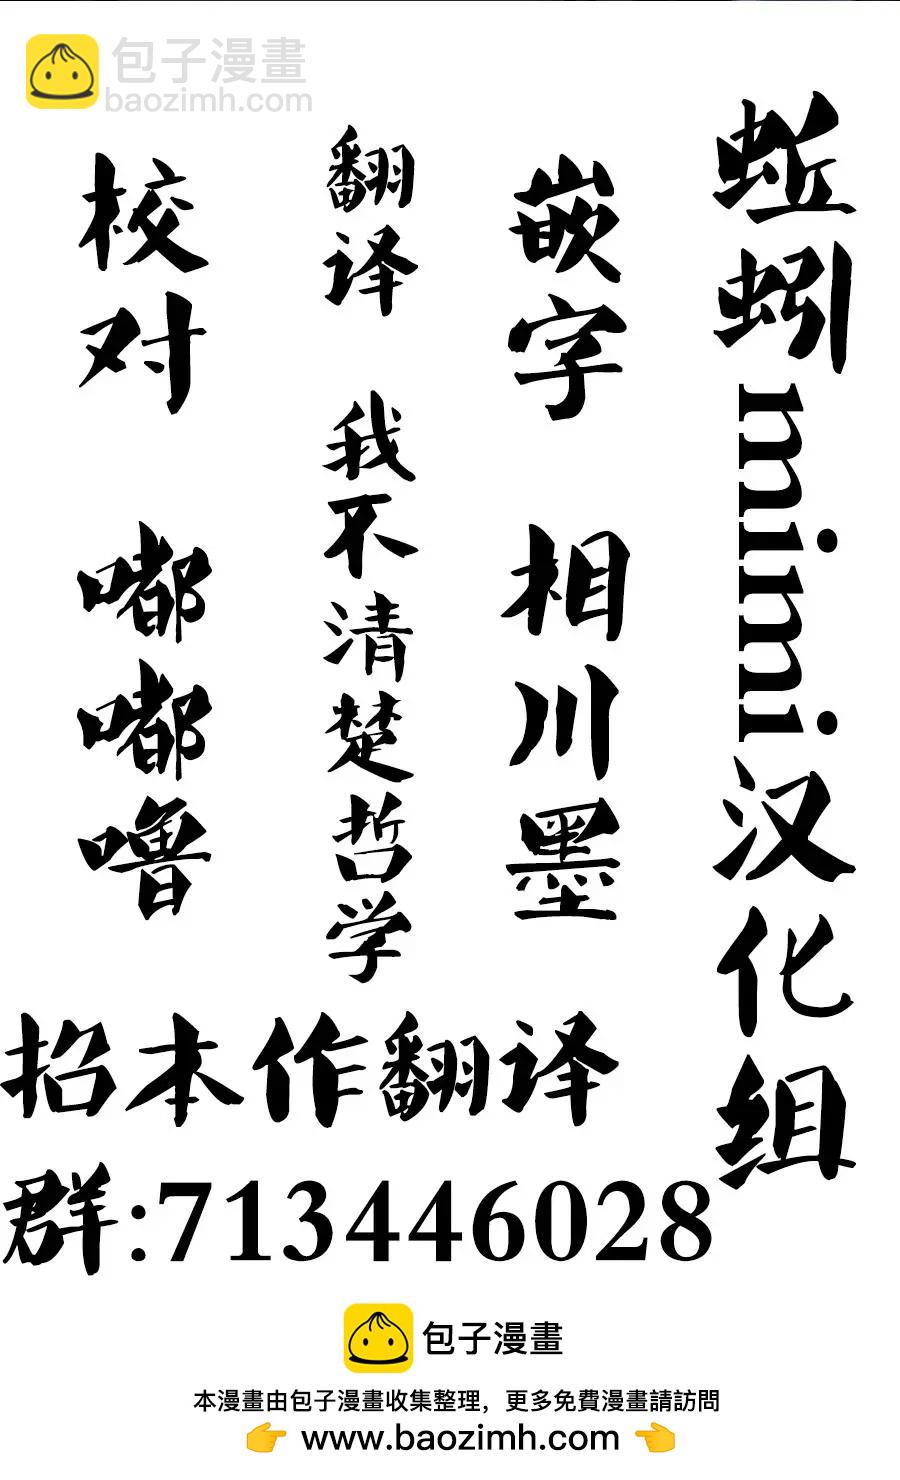 包子漫畫
baozimh.com
蚯蚓mimi汉化组
嵌字 相川墨
翻译 我不清楚哲学
校对 嘟嘟噜
招本作翻译
群:713446028
包子漫畫
本漫畫由包子漫畫收集整理，更多免費漫畫請訪問
👉 www.baozimh.com 👈